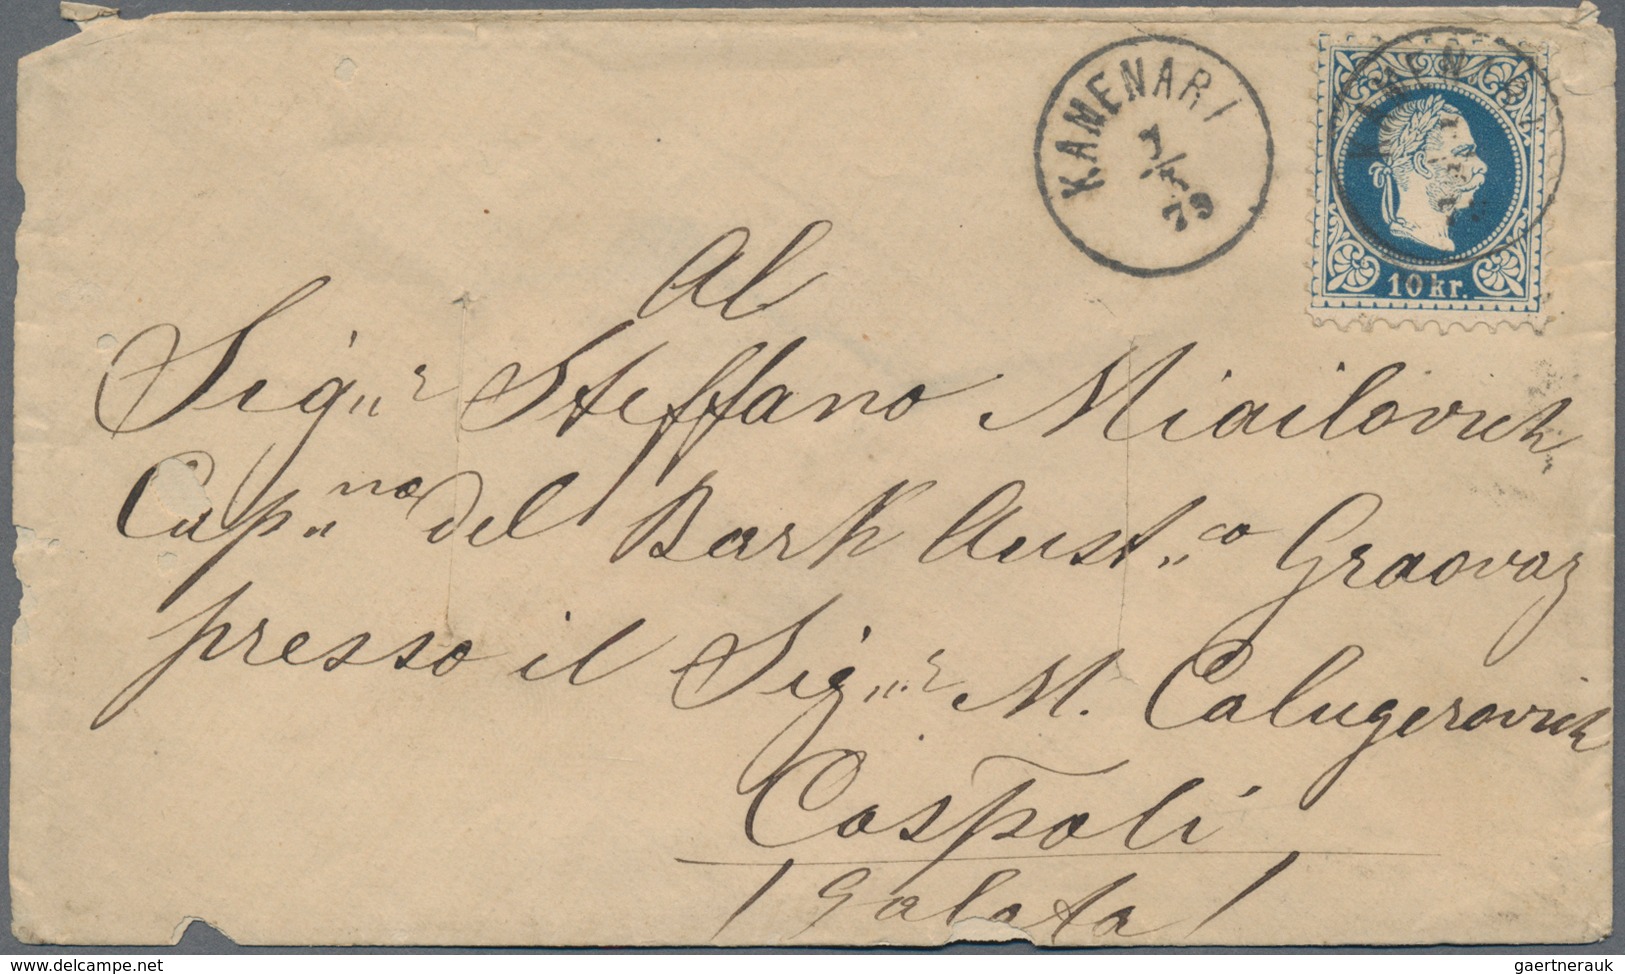 KAMENARI
79
KAMENARI
10 kr.
Al
Sig.r Steffano Miailovich
Cap.no del Bark Aust.co Graovaz
presso il Sig.r M. Calugerovich
Cospoli
/ Galata /
www.delcampe.net
gaertnerauk